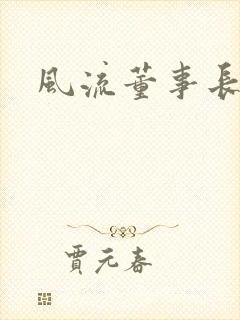 風流董事長
賈元春